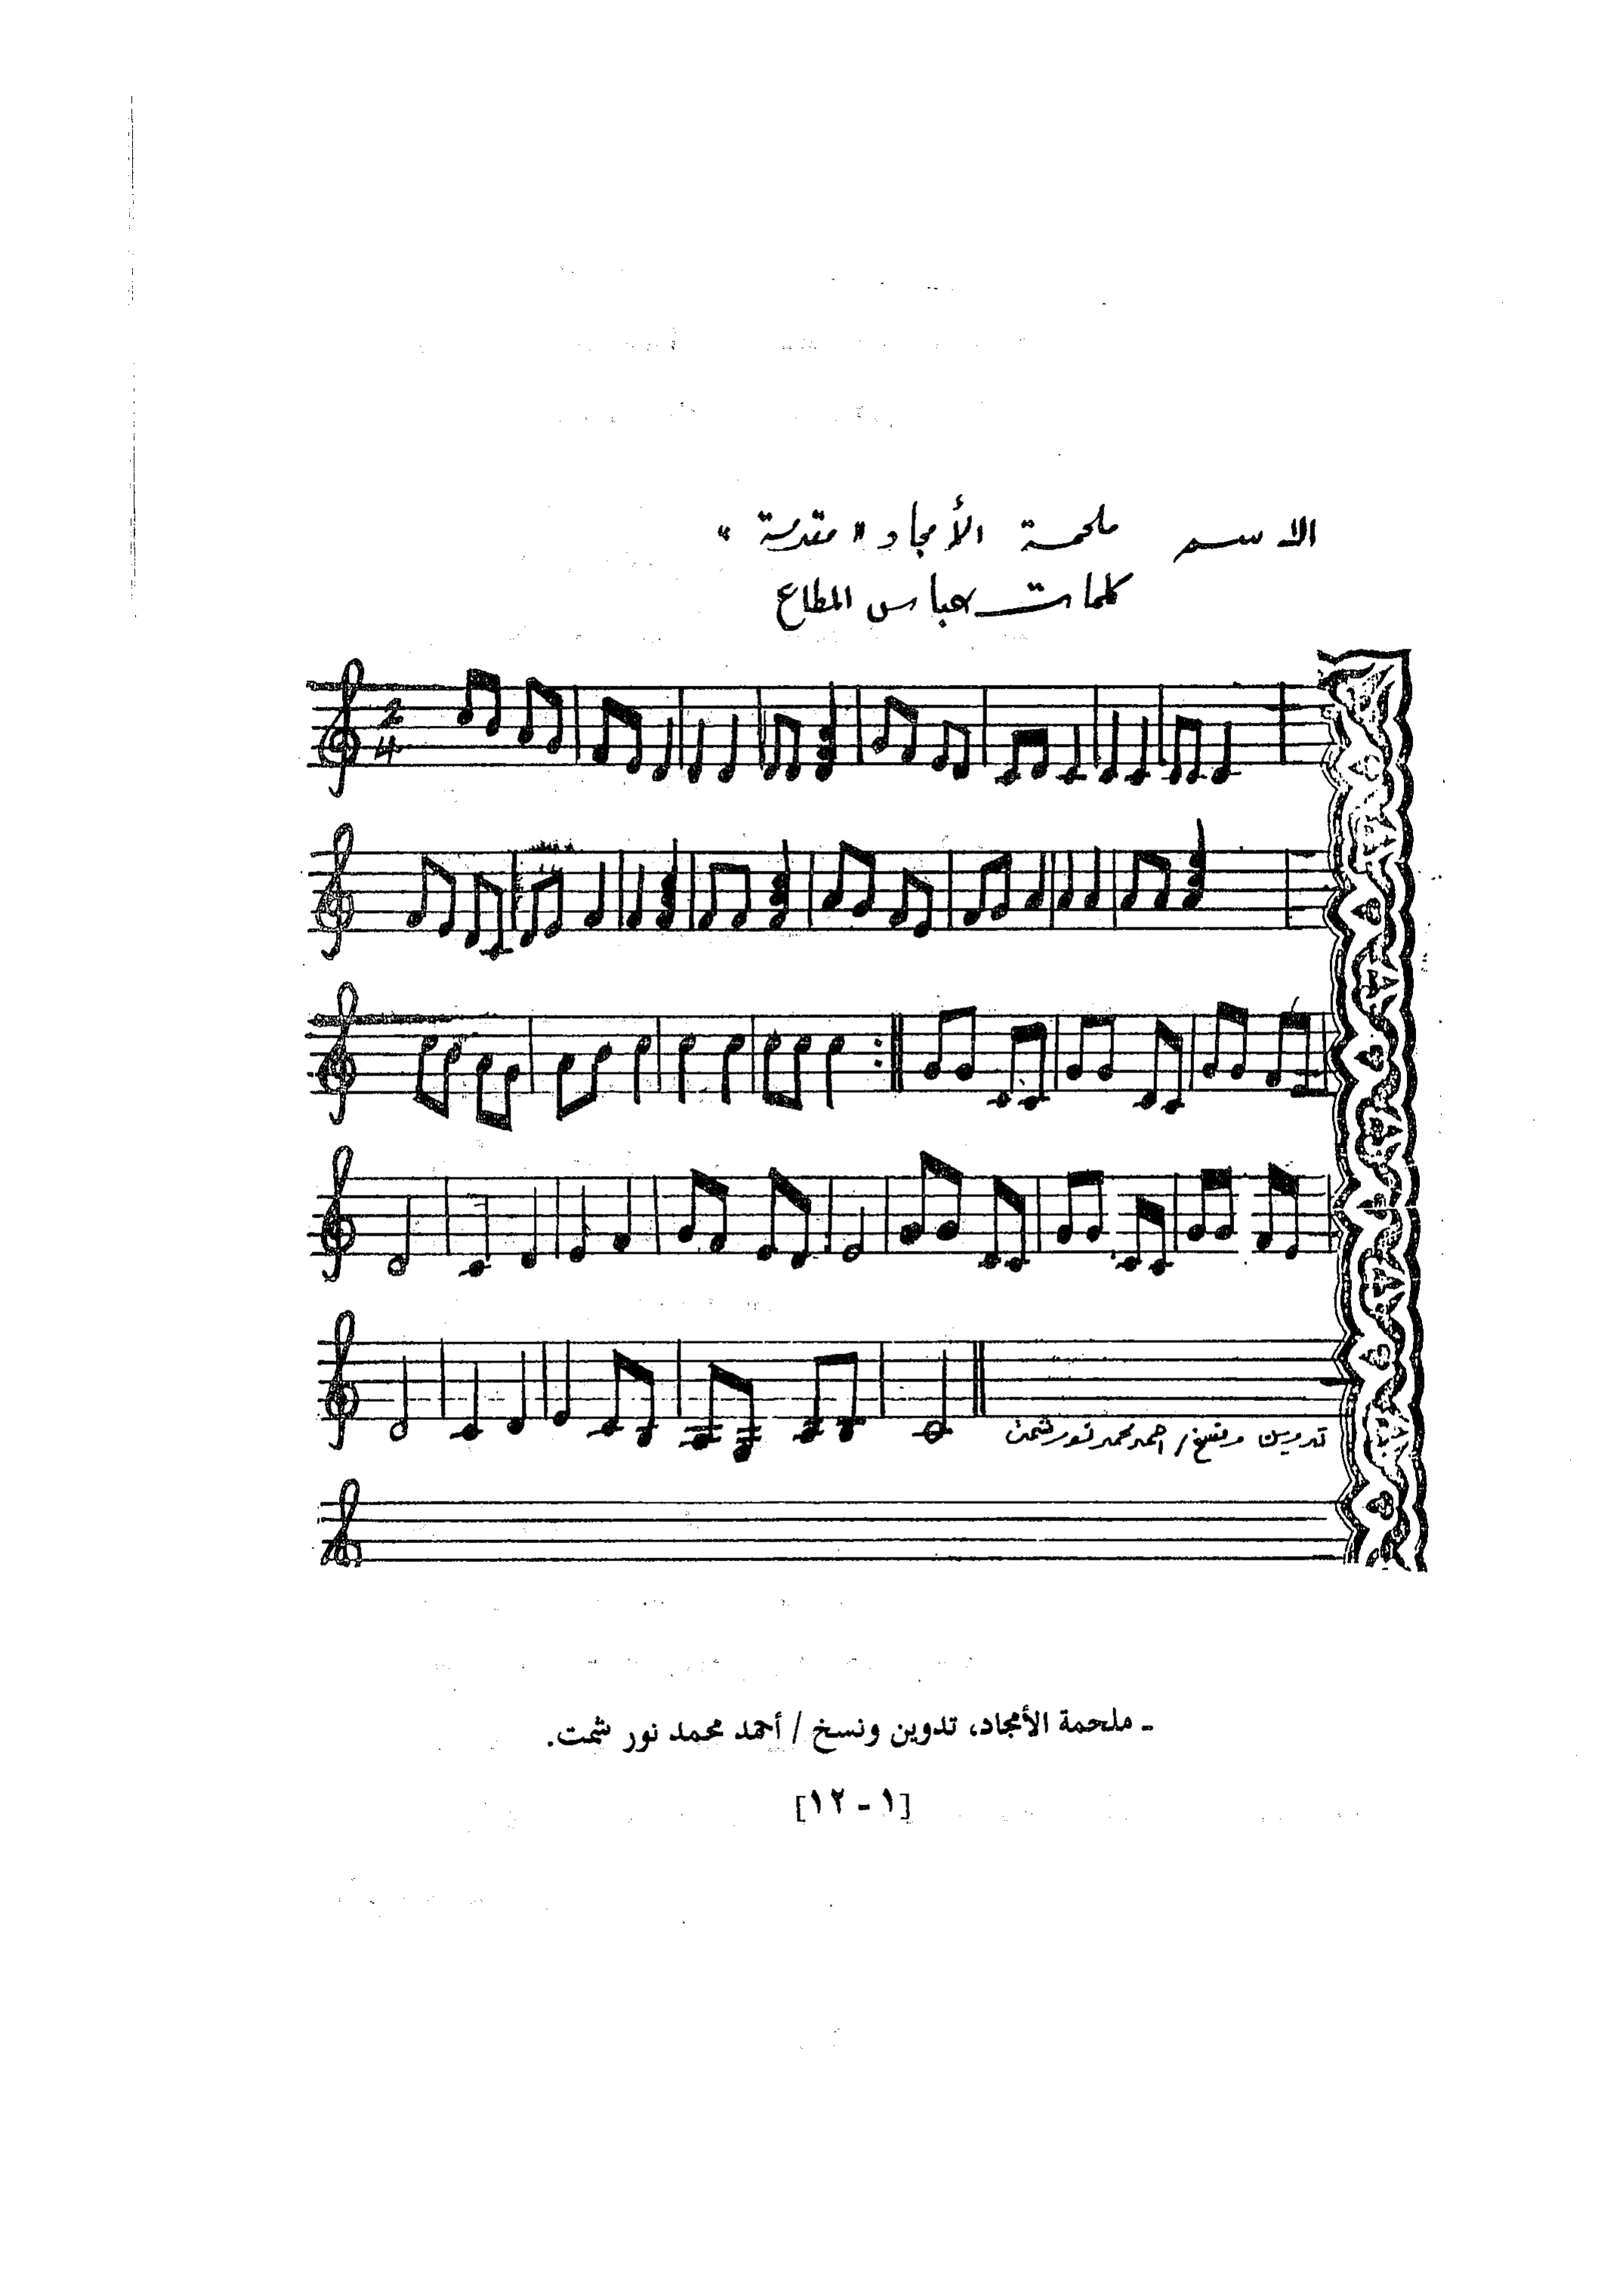 الاسم ملحمة الأمجاد "مقدمة"
كلمات عباس المطاع
2
4
تدوين ونسخ / احمد محمد نور شمت
ـ ملحمة الأمجاد، تدوين ونسخ / أحمد محمد نور شمت.
[١ - ١٢]